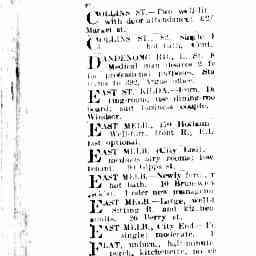 COLLINS ST.—Two well-lit
with door attendance. £2/
Market st.
COLLINS ST., 82. Single
hot bath, Cent.
DANDENONG RD., E. St. K
Medical man desires 2
for professional purposes. Sta
terms to 392, Argus office.
EAST ST. KILDA.—Furn. D
ting-room, use dining-roo
board; suit business couple.
Windsor.
EAST MELB., 150 Hotham
Well-furn. front R., E.L.
fast optional.
EAST MELB. (City End).
medium airy rooms; low
tenant. 90 Gipps st.
EAST MELB.—Newly furn.,
hot bath. 10 Brunswick
Under new management
EAST MELB.—Large, well-f
Sitting R. and kitchen
adults. 26 Berry st.
EAST MELB., City End—F
single; moderate.
FLAT, unfurn., half-minute
porch, kitchenette, no ch